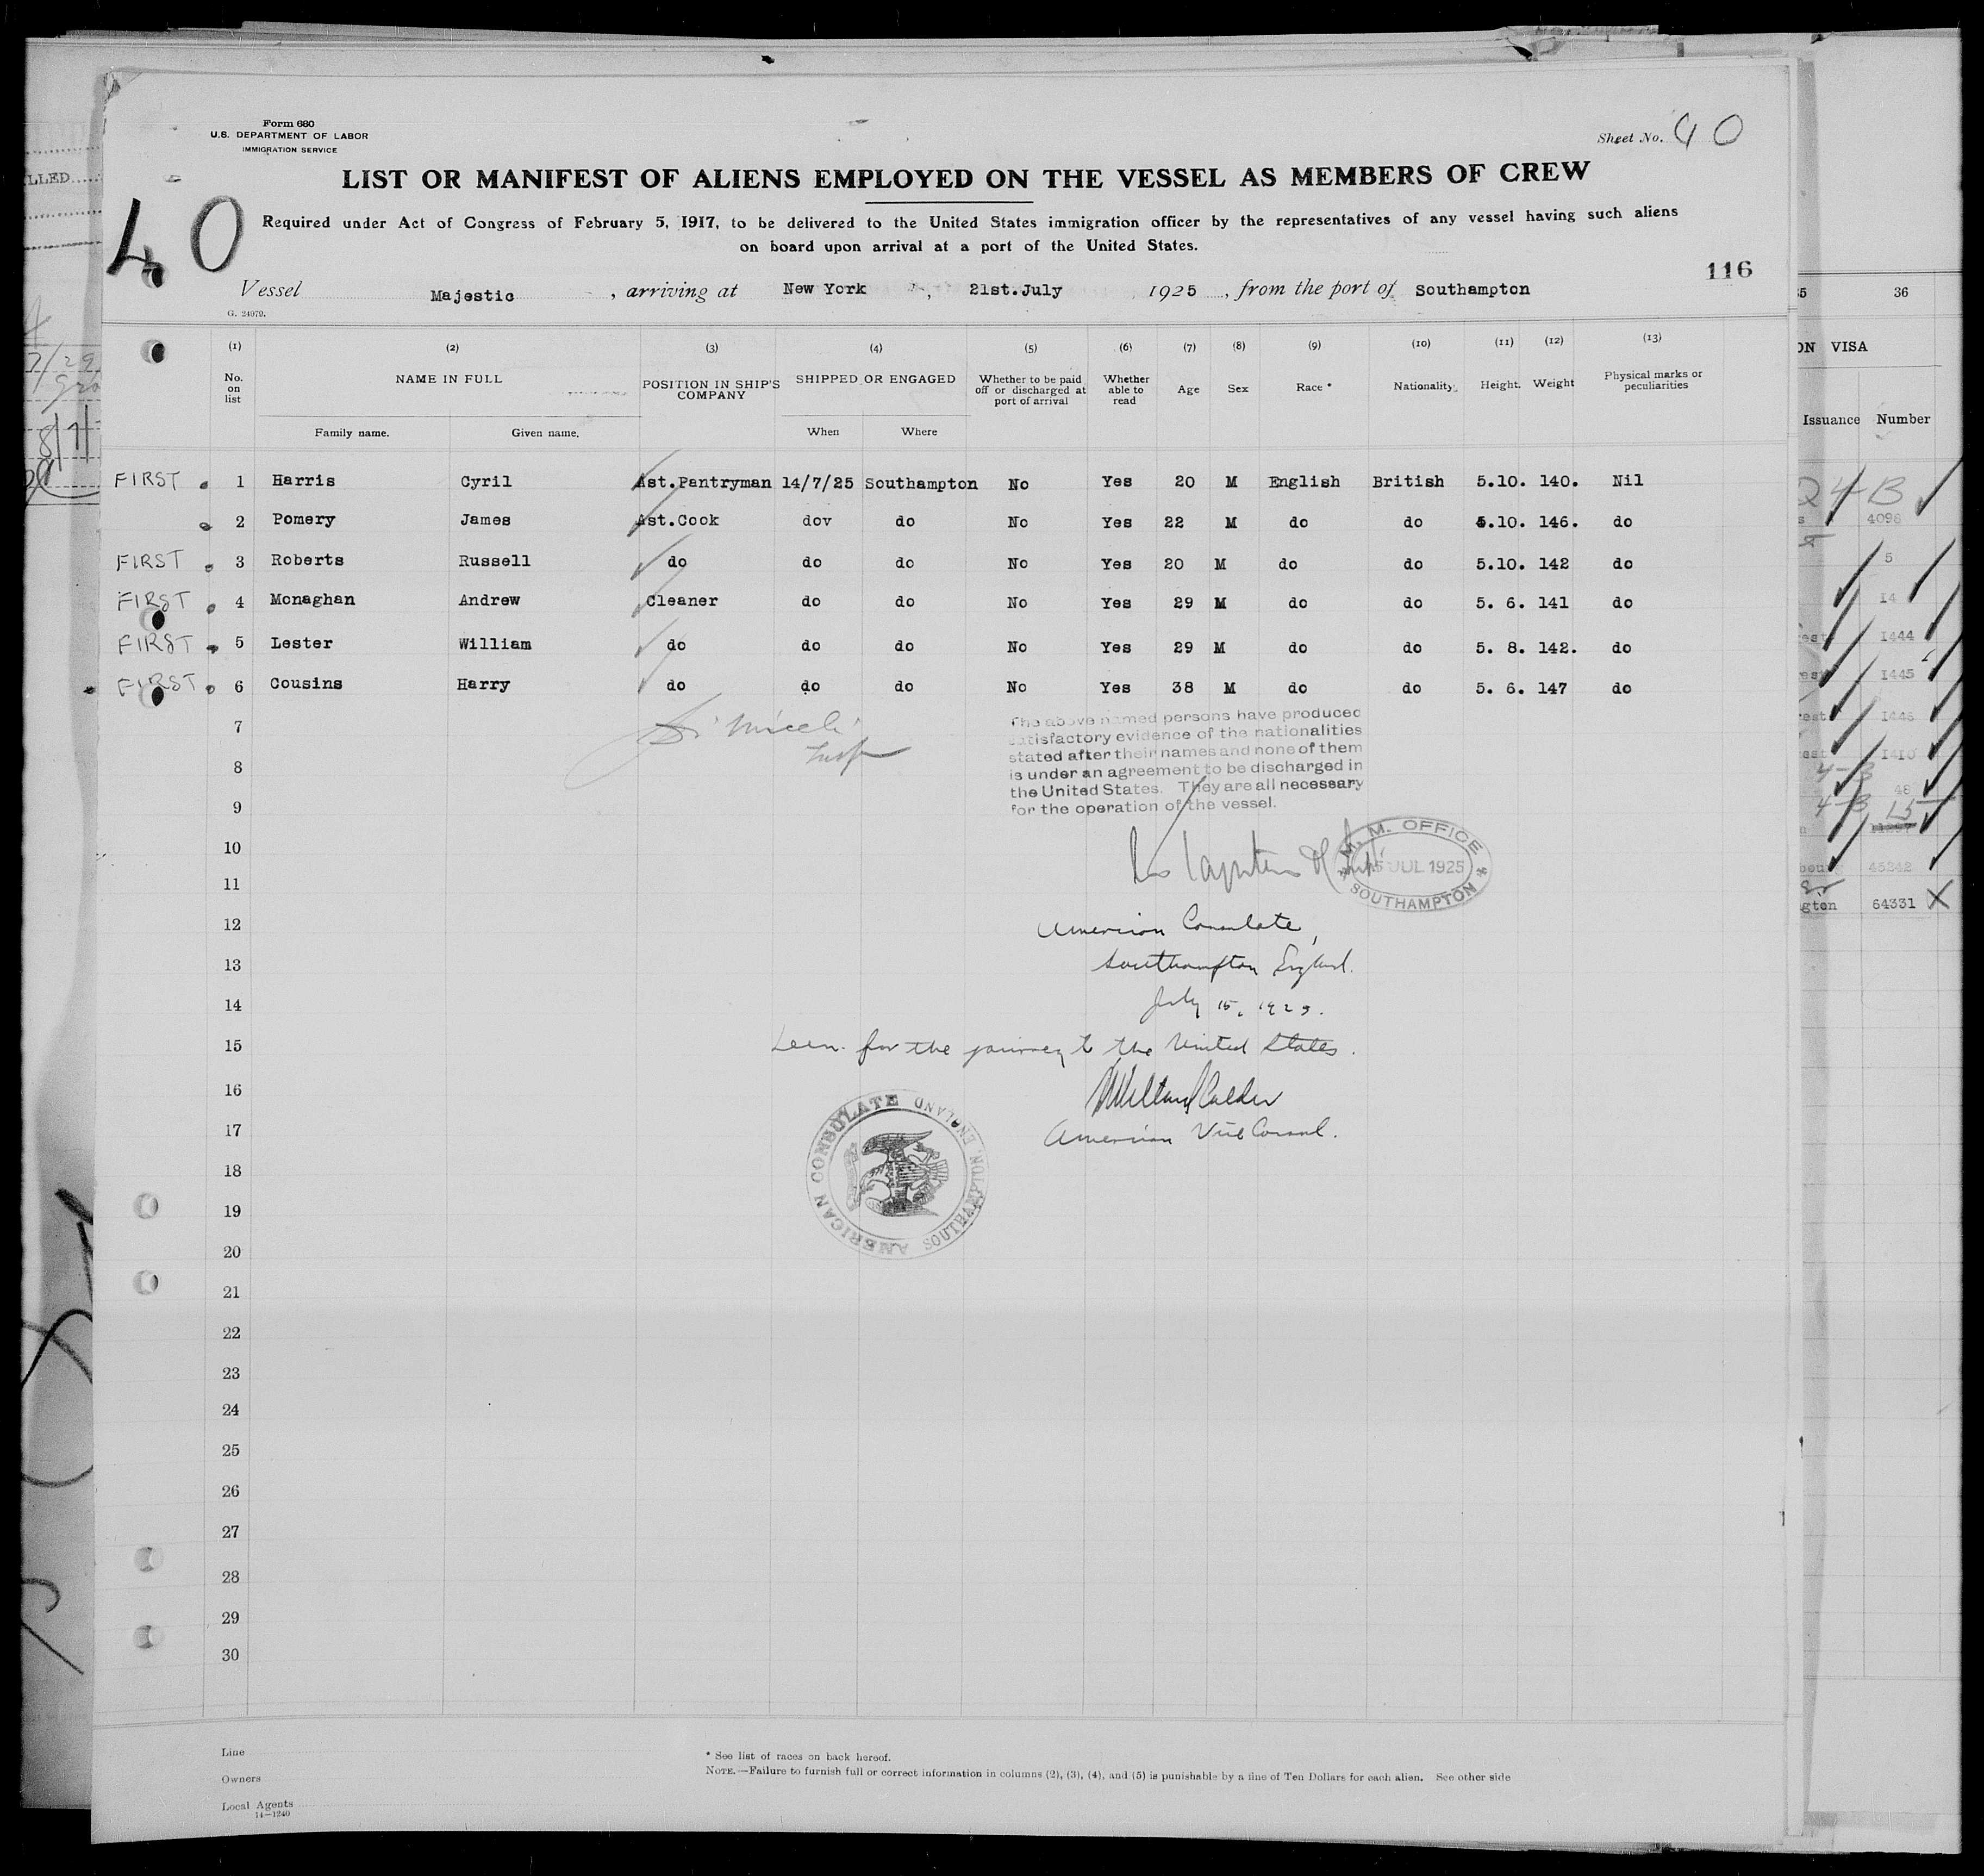 Form 680
U.S. DEPARTMENT OF LABOR
IMMIGRATION SERVICE
Sheet No. 40
LIST OR MANIFEST OF ALIENS EMPLOYED ON THE VESSEL AS MEMBERS OF CREW
40
Required under Act of Congress of February 5, 1917, to be delivered to the United States immigration officer by the representatives of any vessel having such aliens
on board upon arrival at a port of the United States.
116
Vessel Majestic, arriving at New York, 21st.July 1925, from the port of Southampton
G. 24979.
(1) (2) (3) (4) (5) (6) (7) (8) (9) (10) (11) (12) (13)
No. on list NAME IN FULL POSITION IN SHIP'S COMPANY SHIPPED OR ENGAGED Whether to be paid off or discharged at port of arrival Whether able to read Age Sex Race * Nationality. Height. Weight Physical marks or peculiarities
Family name. Given name. When Where
FIRST 1 Harris Cyril Ast.Pantryman 14/7/25 Southampton No Yes 20 M English British 5.10. 140. Nil
2 Pomery James Ast.Cook dov do No Yes 22 M do do 5.10. 146. do
FIRST 3 Roberts Russell do do do No Yes 20 M do do 5.10. 142 do
FIRST 4 Monaghan Andrew Cleaner do do No Yes 29 M do do 5. 6. 141 do
FIRST 5 Lester William do do do No Yes 29 M do do 5. 8. 142. do
FIRST 6 Cousins Harry do do do No Yes 38 M do do 5. 6. 147 do
7
8
9
10
11
12
13
14
15
16
17
18
19
20
21
22
23
24
25
26
27
28
29
30
The above named persons have produced
satisfactory evidence of the nationalities
stated after their names and none of them
is under an agreement to be discharged in
the United States. They are all necessary
for the operation of the vessel.
M. M. OFFICE
15 JUL 1925
SOUTHAMPTON
American Consulate,
Southampton England.
July 15, 1925.
Seen for the journey to the United States.
American Vice Consul.
AMERICAN CONSULATE
SOUTHAMPTON, ENGLAND
Line
Owners
Local Agents
14—1240
* See list of races on back hereof.
NOTE.—Failure to furnish full or correct information in columns (2), (3), (4), and (5) is punishable by a fine of Ten Dollars for each alien. See other side
LLED
36
VISA
Issuance Number
4098
5
14
1444
1445
1446
1410
48
15
45342
64331